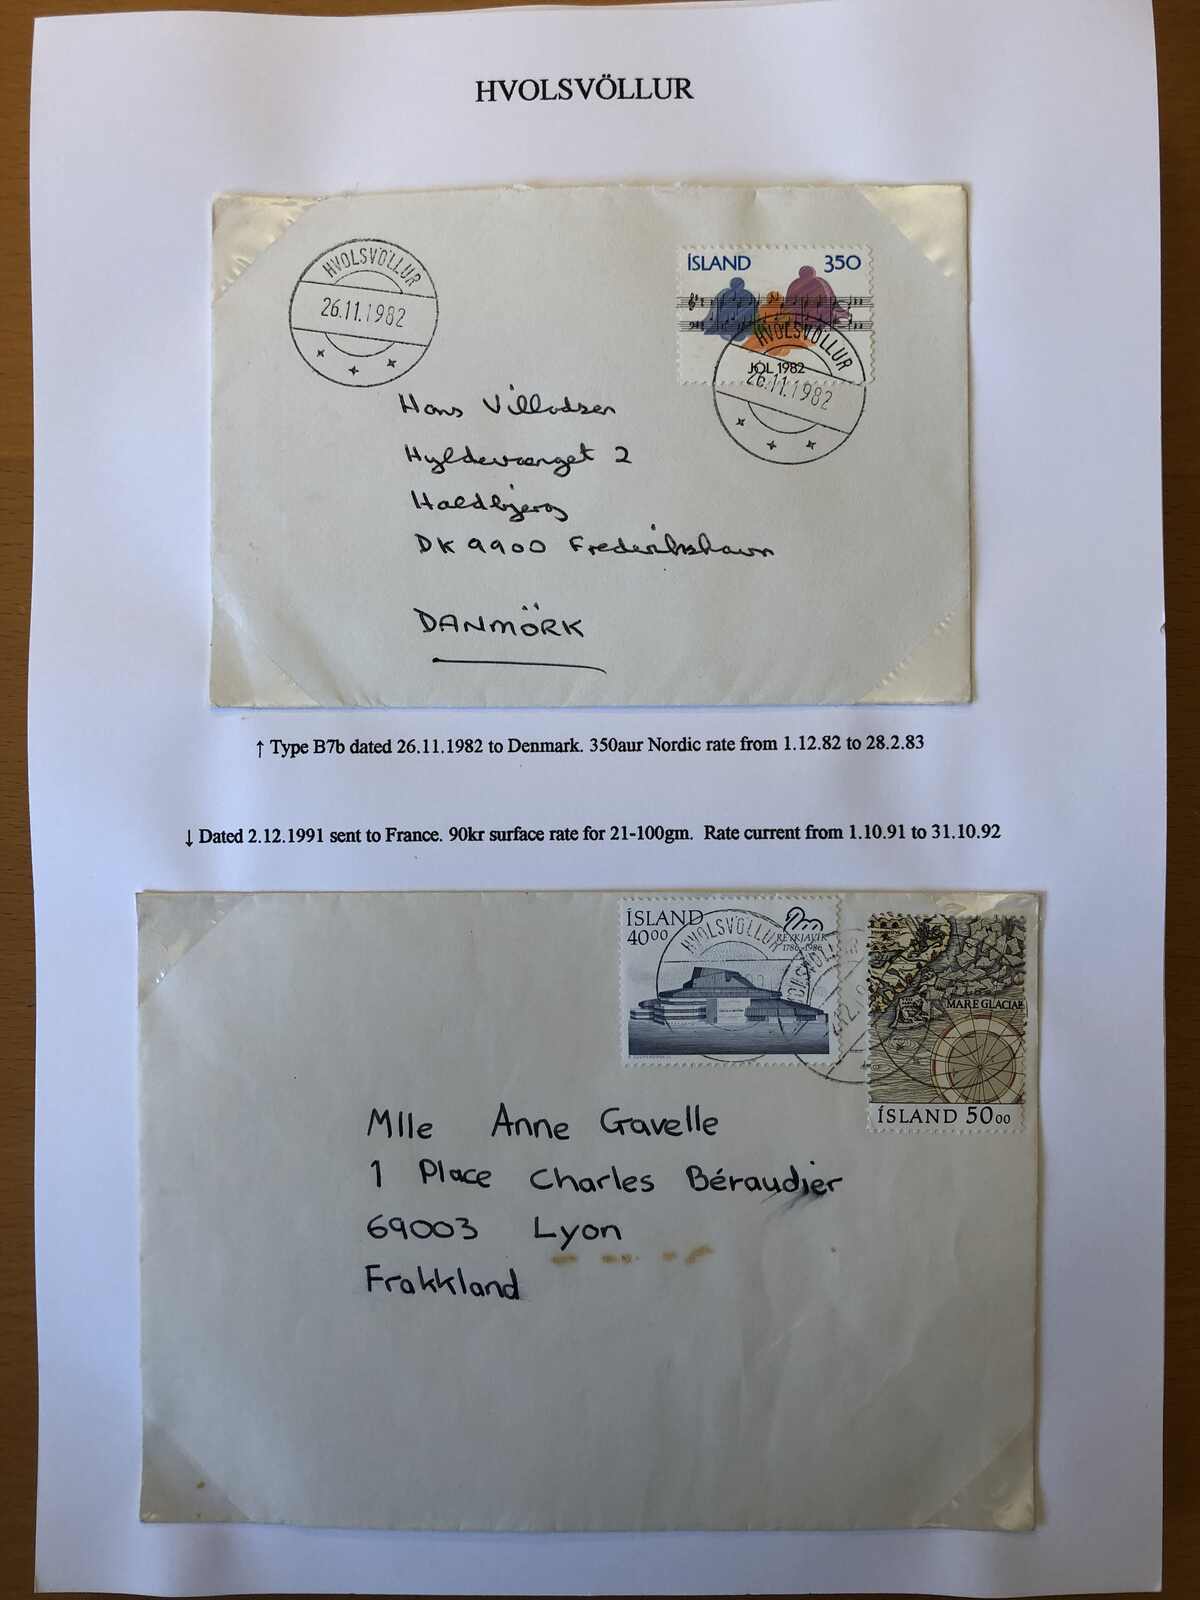 HVOLSVÖLLUR
HVOLSVÖLLUR
26.11.1982
ÍSLAND 350
JÓL 1982
HVOLSVÖLLUR
26.11.1982
Hans Villadsen
Hyldevænget 2
Haldbjerg
DK 9900 Frederikshavn
DANMÖRK
↑ Type B7b dated 26.11.1982 to Denmark. 350aur Nordic rate from 1.12.82 to 28.2.83
↓ Dated 2.12.1991 sent to France. 90kr surface rate for 21-100gm. Rate current from 1.10.91 to 31.10.92
ÍSLAND
4000
REYKJAVÍK
1786-1986
HVOLSVÖLLUR
MARE GLACIAE
ÍSLAND 5000
Mlle Anne Gavelle
1 Place Charles Béraudier
69003 Lyon
Frakkland